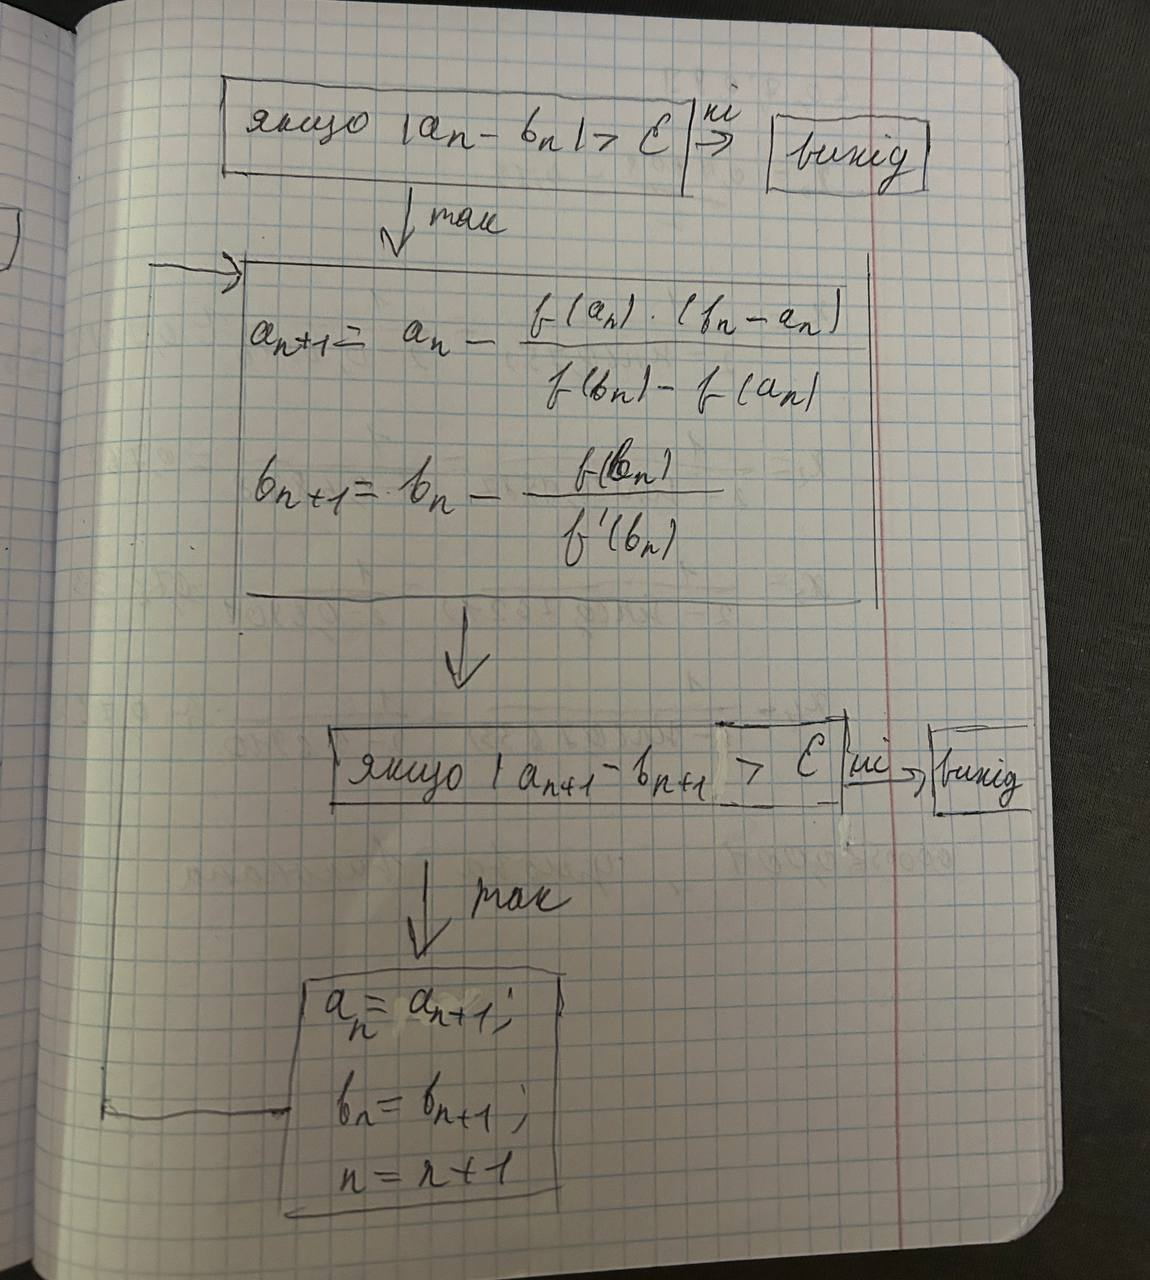 якщо |aₙ - bₙ| > ε ні → вихід
так
aₙ₊₁ = aₙ - f(aₙ) · (bₙ - aₙ) / f(bₙ) - f(aₙ)
bₙ₊₁ = bₙ - f(bₙ) / f'(bₙ)
якщо |aₙ₊₁ - bₙ₊₁ > ε ні → вихід
так
aₙ = aₙ₊₁;
bₙ = bₙ₊₁;
n = n + 1